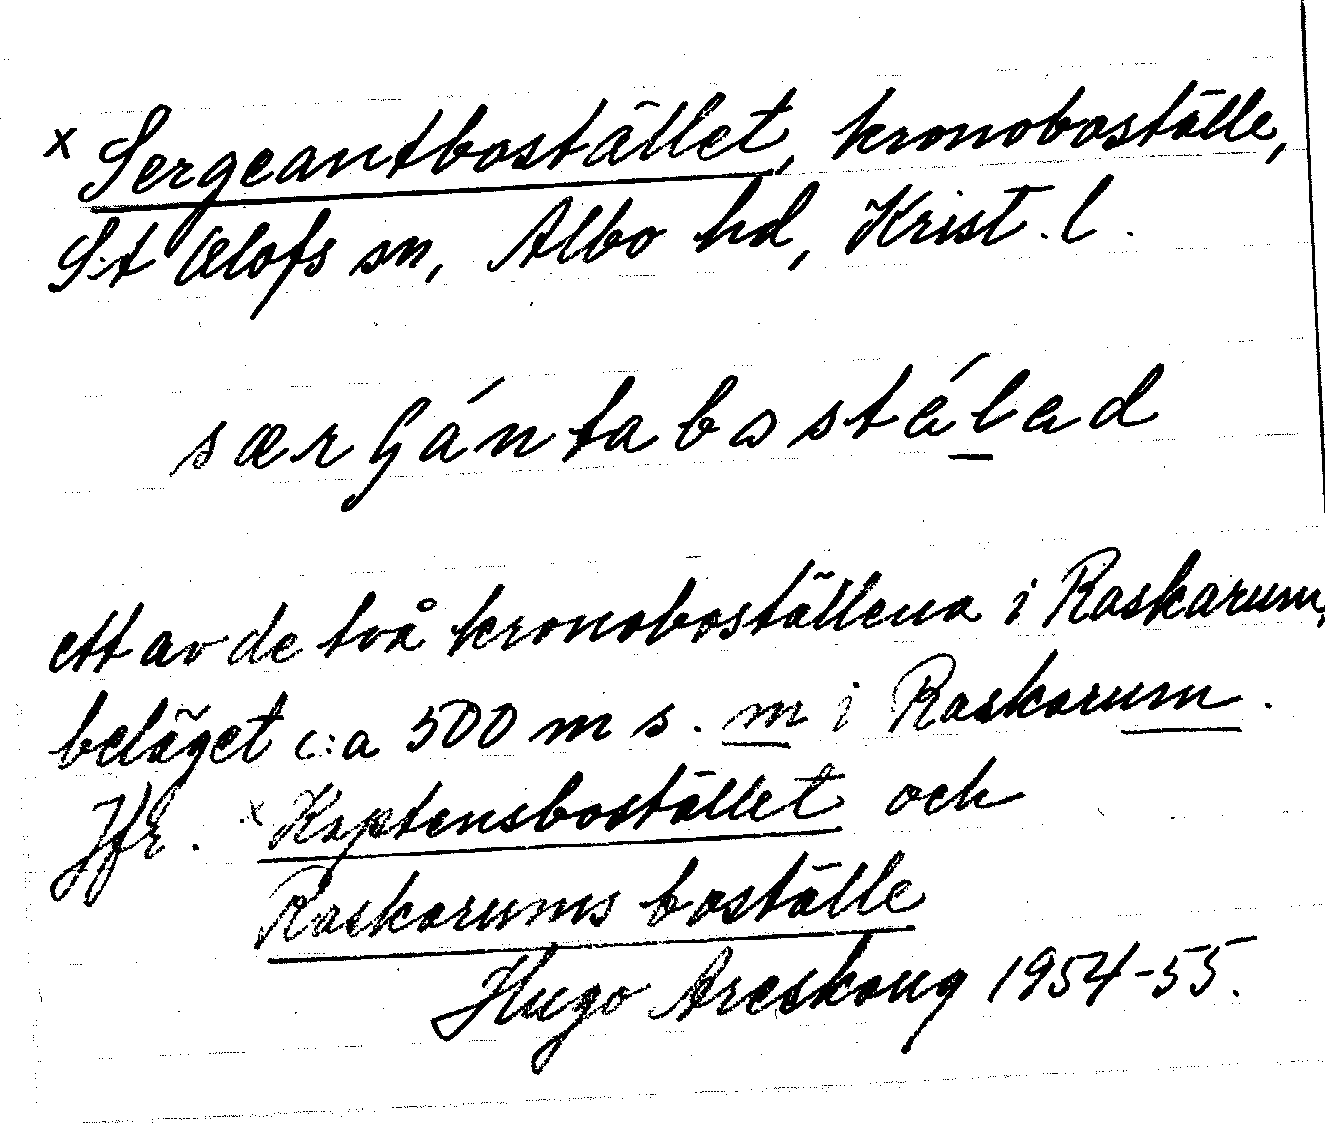 x Sergeantbostället, kronoboställe,
S:t Olofs sn, Albo hd, Krist. l.
særʃántabostálad
ett av de två kronoboställena i Raskarum,
beläget c:a 500 m s. m i Raskarum.
Jfr. x Kaptensbostället och
Raskarums boställe
Hugo Areskoug 1954-55.